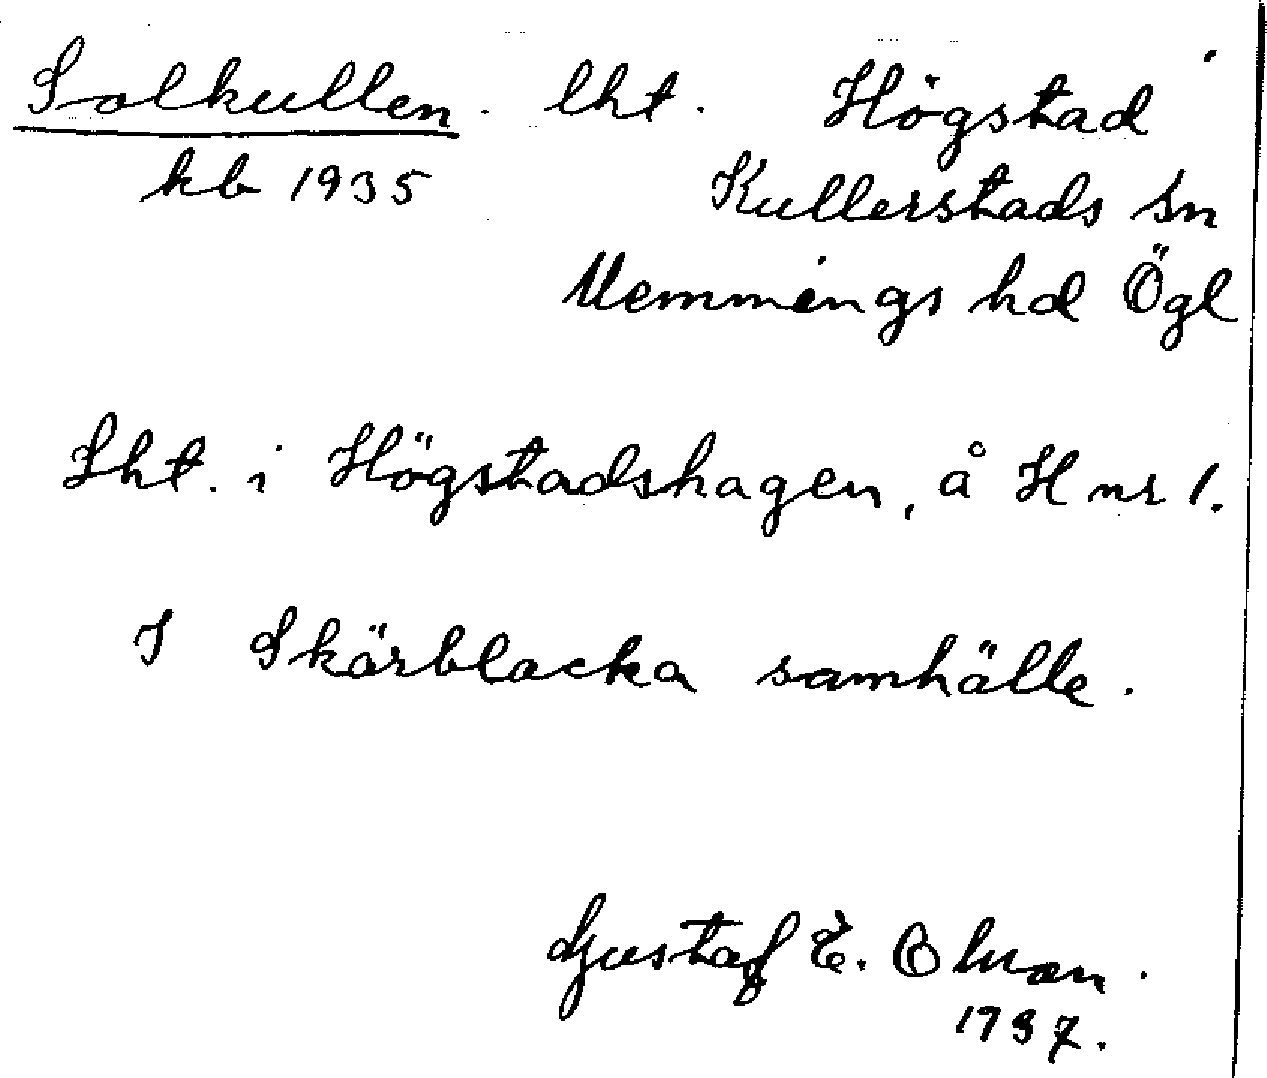 Solkullen. lht. Högstad
kb 1935 Kullerstads sn
Memmings hd Ögl
Lht. i Högstadshagen, å H nr 1.
I Skärblacka samhälle.
Gustaf E. Olson.
1937.